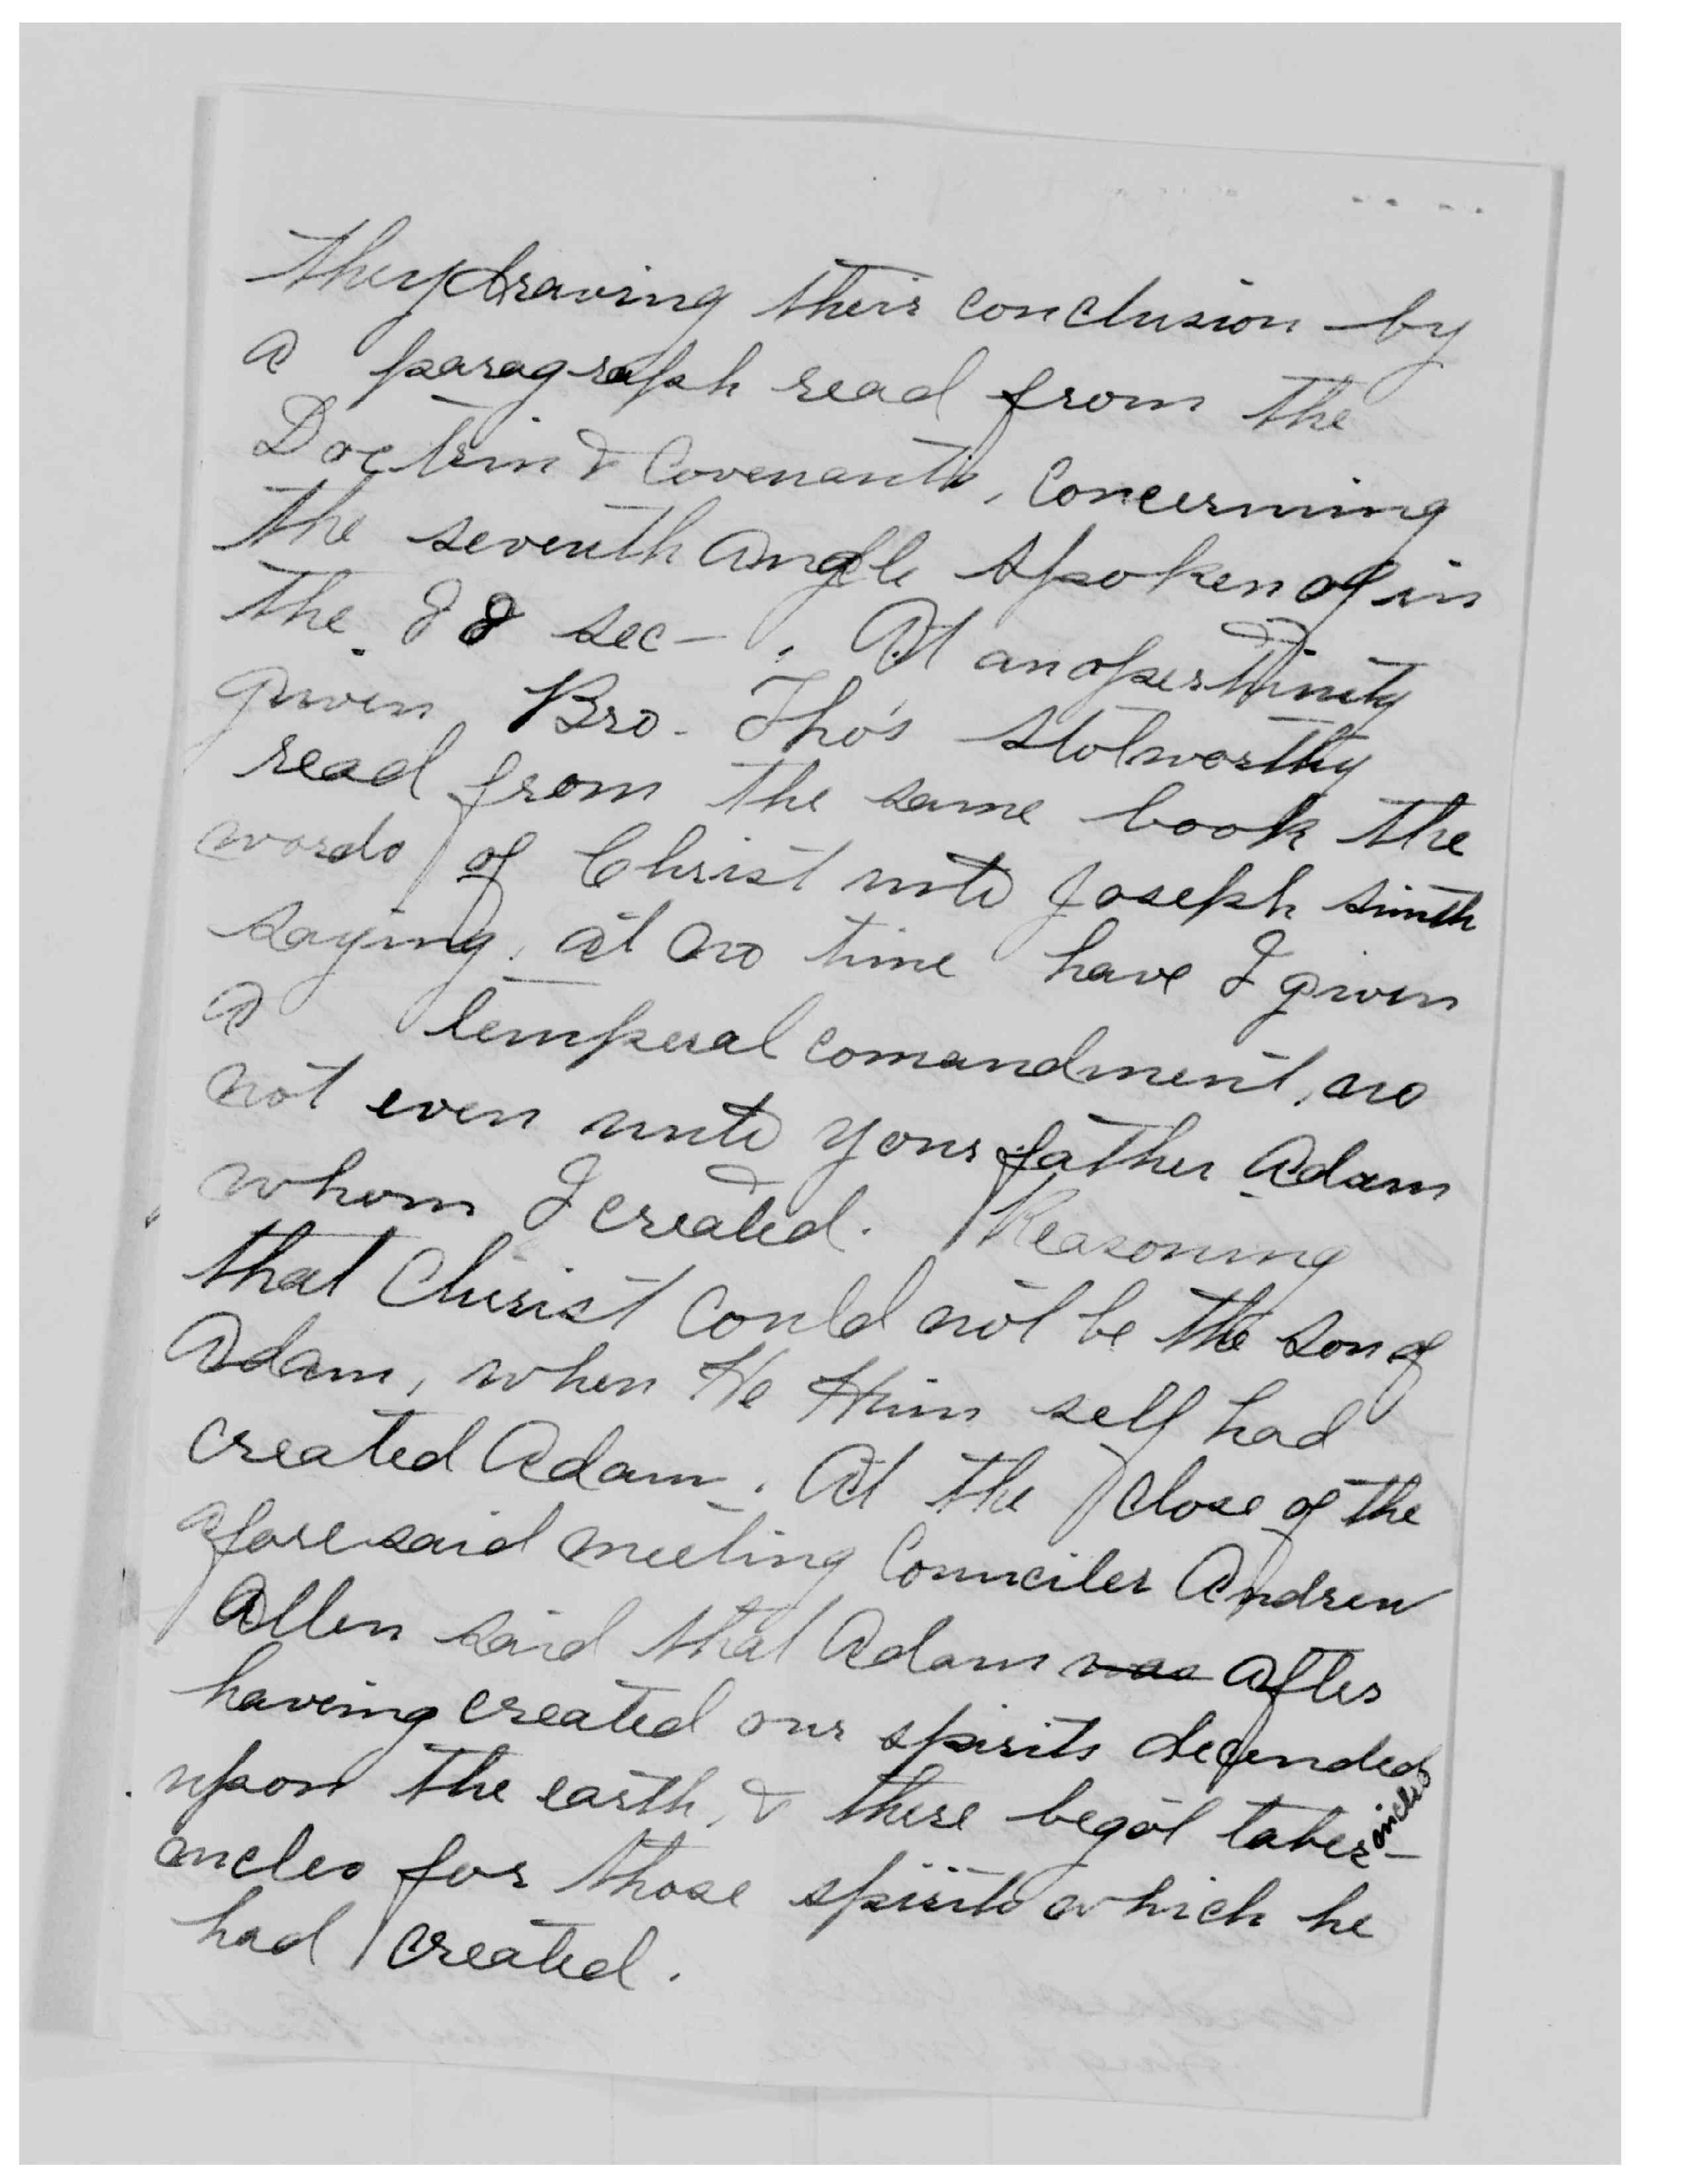 they drawing their conclusion by
a paragraph read from the
Doctrin & Covenants, Concerning
the seventh angle spoken of in
the 88 sec-. At an opertunity
given Bro. Tho's Stolworthy
read from the same book the
words of Christ unto Joseph Smith
saying, at no time have I given
a temperal comandment, no
not even unto your father Adam
whom I created. Reasoning
that Christ could not be the son of
Adam, when He Him self had
created Adam. At the close of the
afore said meeting Counciler Andrew
Allen said that Adam was after
haveing created our spirits decended
upon the earth, & there begot taber-
ancles for those spirits which he
had created.